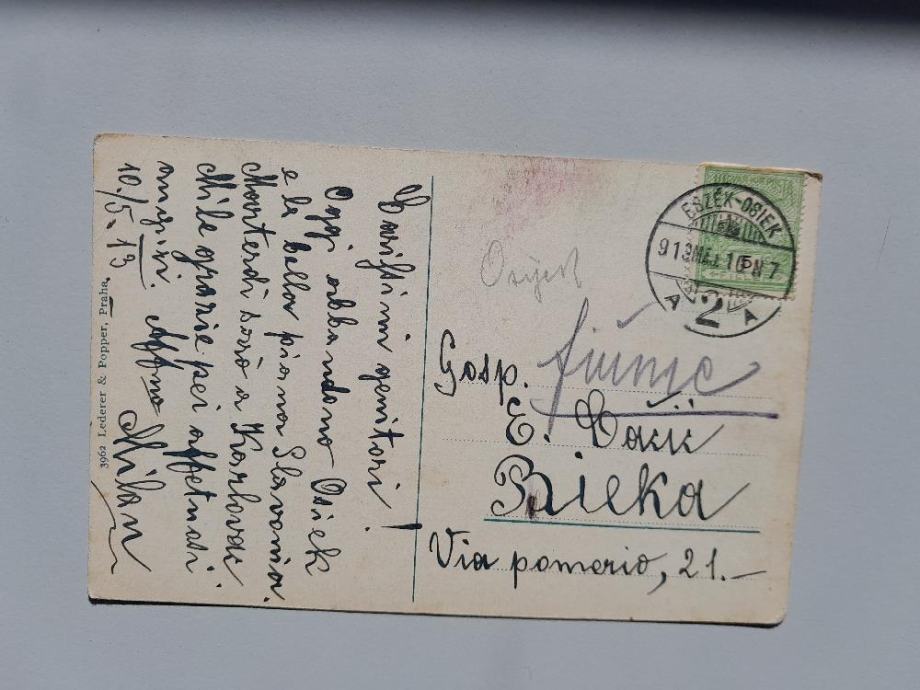 Carissimi genitori!
Oggi abbandono Osiek
e la bella piana Slavonia.
Martedì sarò a Karlovac
Mille grazie pei affettuosi
auguri. Affmo Milan
10./5. 13
3962 Lederer & Popper, Praha.
ESZÉK-OSIEK
913 MÁJ. 10 N 7
A 2 A
Osijek
Gosp. fiume
E.
Rieka
Via pomerio, 21.–